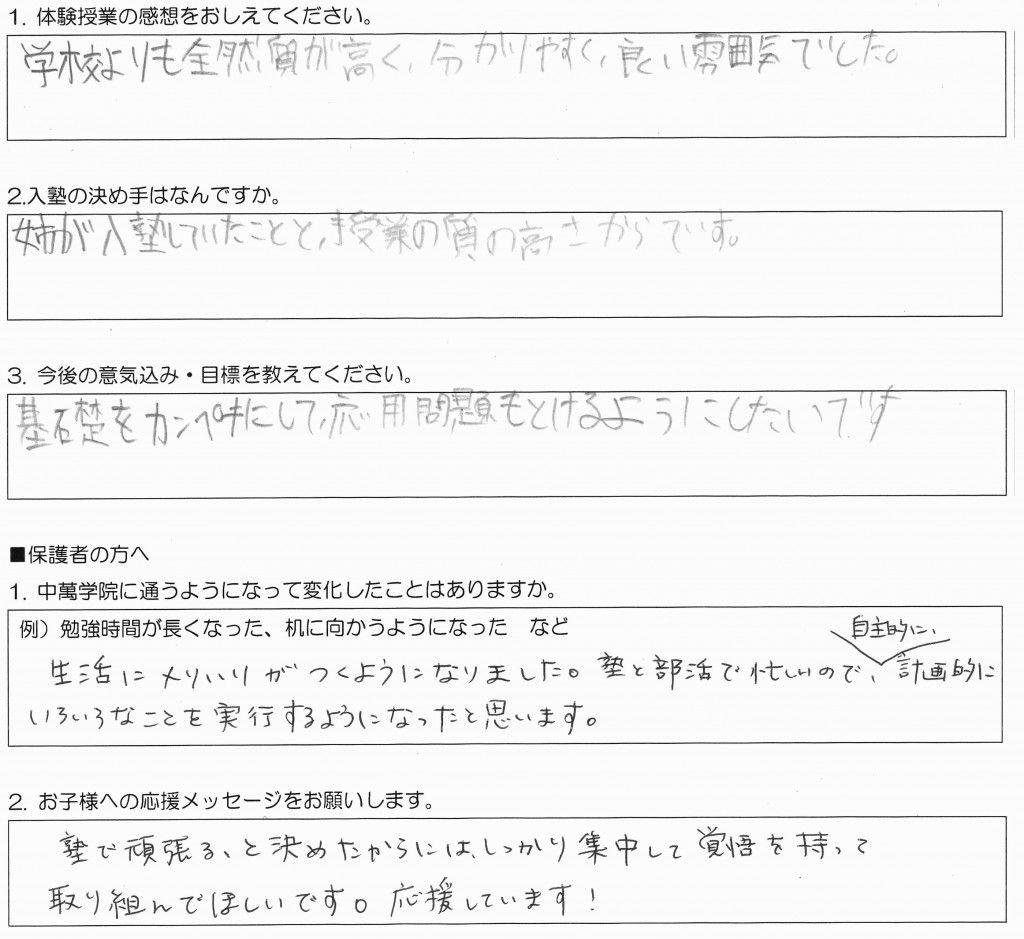 1. 体験授業の感想をおしえてください。
学校よりも全然質が高く、分かりやすく、良い雰囲気でした。
2.入塾の決め手はなんですか。
姉が入塾していたことと、授業の質の高さからです。
3. 今後の意気込み・目標を教えてください。
基礎をカンペキにして、応用問題もとけるようにしたいです
■保護者の方へ
1. 中萬学院に通うようになって変化したことはありますか。
例）勉強時間が長くなった、机に向かうようになった　など
自主的に、
生活にメリハリがつくようになりました。塾と部活で忙しいので、計画的に
いろいろなことを実行するようになったと思います。
2. お子様への応援メッセージをお願いします。
塾で頑張る、と決めたからには、しっかり集中して覚悟を持って
取り組んでほしいです。応援しています！